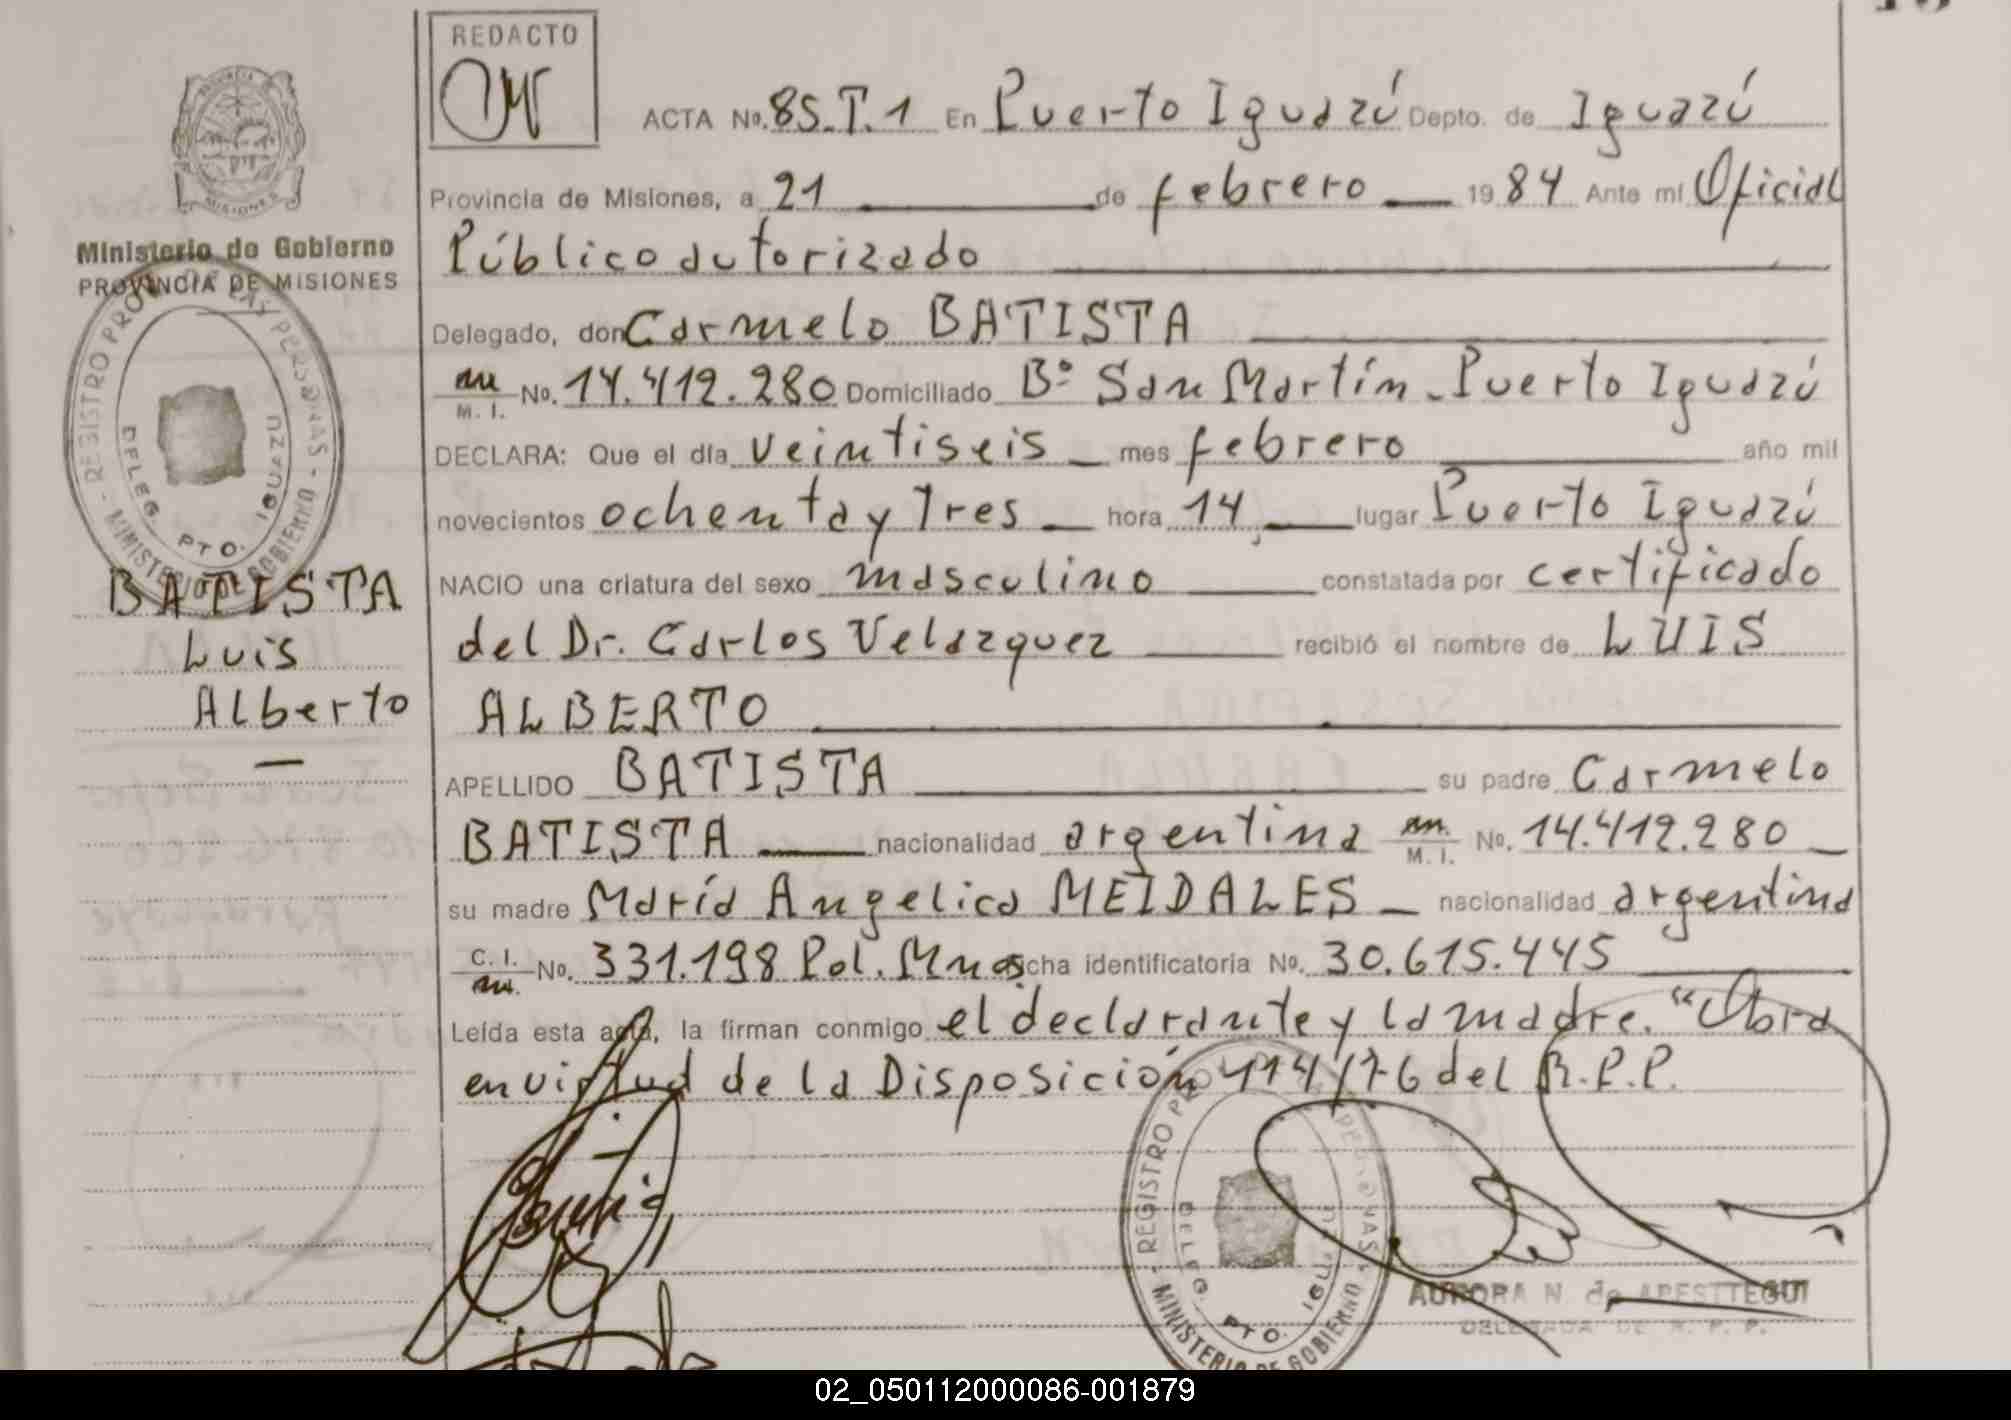 REDACTO
ACTA No. 85.T.1 En Puerto Iguazú Depto. de Iguazú
Provincia de Misiones, a 21 de febrero 1984 Ante mí Oficial
Público autorizado
Delegado, don Carmelo BATISTA
M. I. No. 14.412.280 Domiciliado Bº San Martín - Puerto Iguazú
DECLARA: Que el día veintiseis mes febrero año mil
novecientos ochenta y Tres hora 14, lugar Puerto Iguazú
NACIO una criatura del sexo masculino constatada por certificado
del Dr. Carlos Velazquez recibió el nombre de LUIS
ALBERTO
APELLIDO BATISTA su padre Carmelo
BATISTA nacionalidad argentina M. I. No. 14.412.280
su madre María Angelica MEIDALES nacionalidad argentina
C. I. No. 331.198 Pol. Mnes icha identificatoria No. 30.615.445
Leída esta acta, la firman conmigo el declarante y la madre. "Obra
en virtud de la Disposición 414/76 del R.P.P.
Ministerio de Gobierno
PROVINCIA DE MISIONES
MISIONES
REGISTRO PROV. DE LAS PERSONAS - MINISTERIO DE GOBIERNO -
DELEG. PTO. IGUAZU
BATISTA
Luis
Alberto
REGISTRO PROV. PERSONAS - MINISTERIO DE GOBIERNO
DELEG. PTO.
AURORA N. de APESTTEGUI
DELEGADA DE R. P. P.
02_050112000086-001879